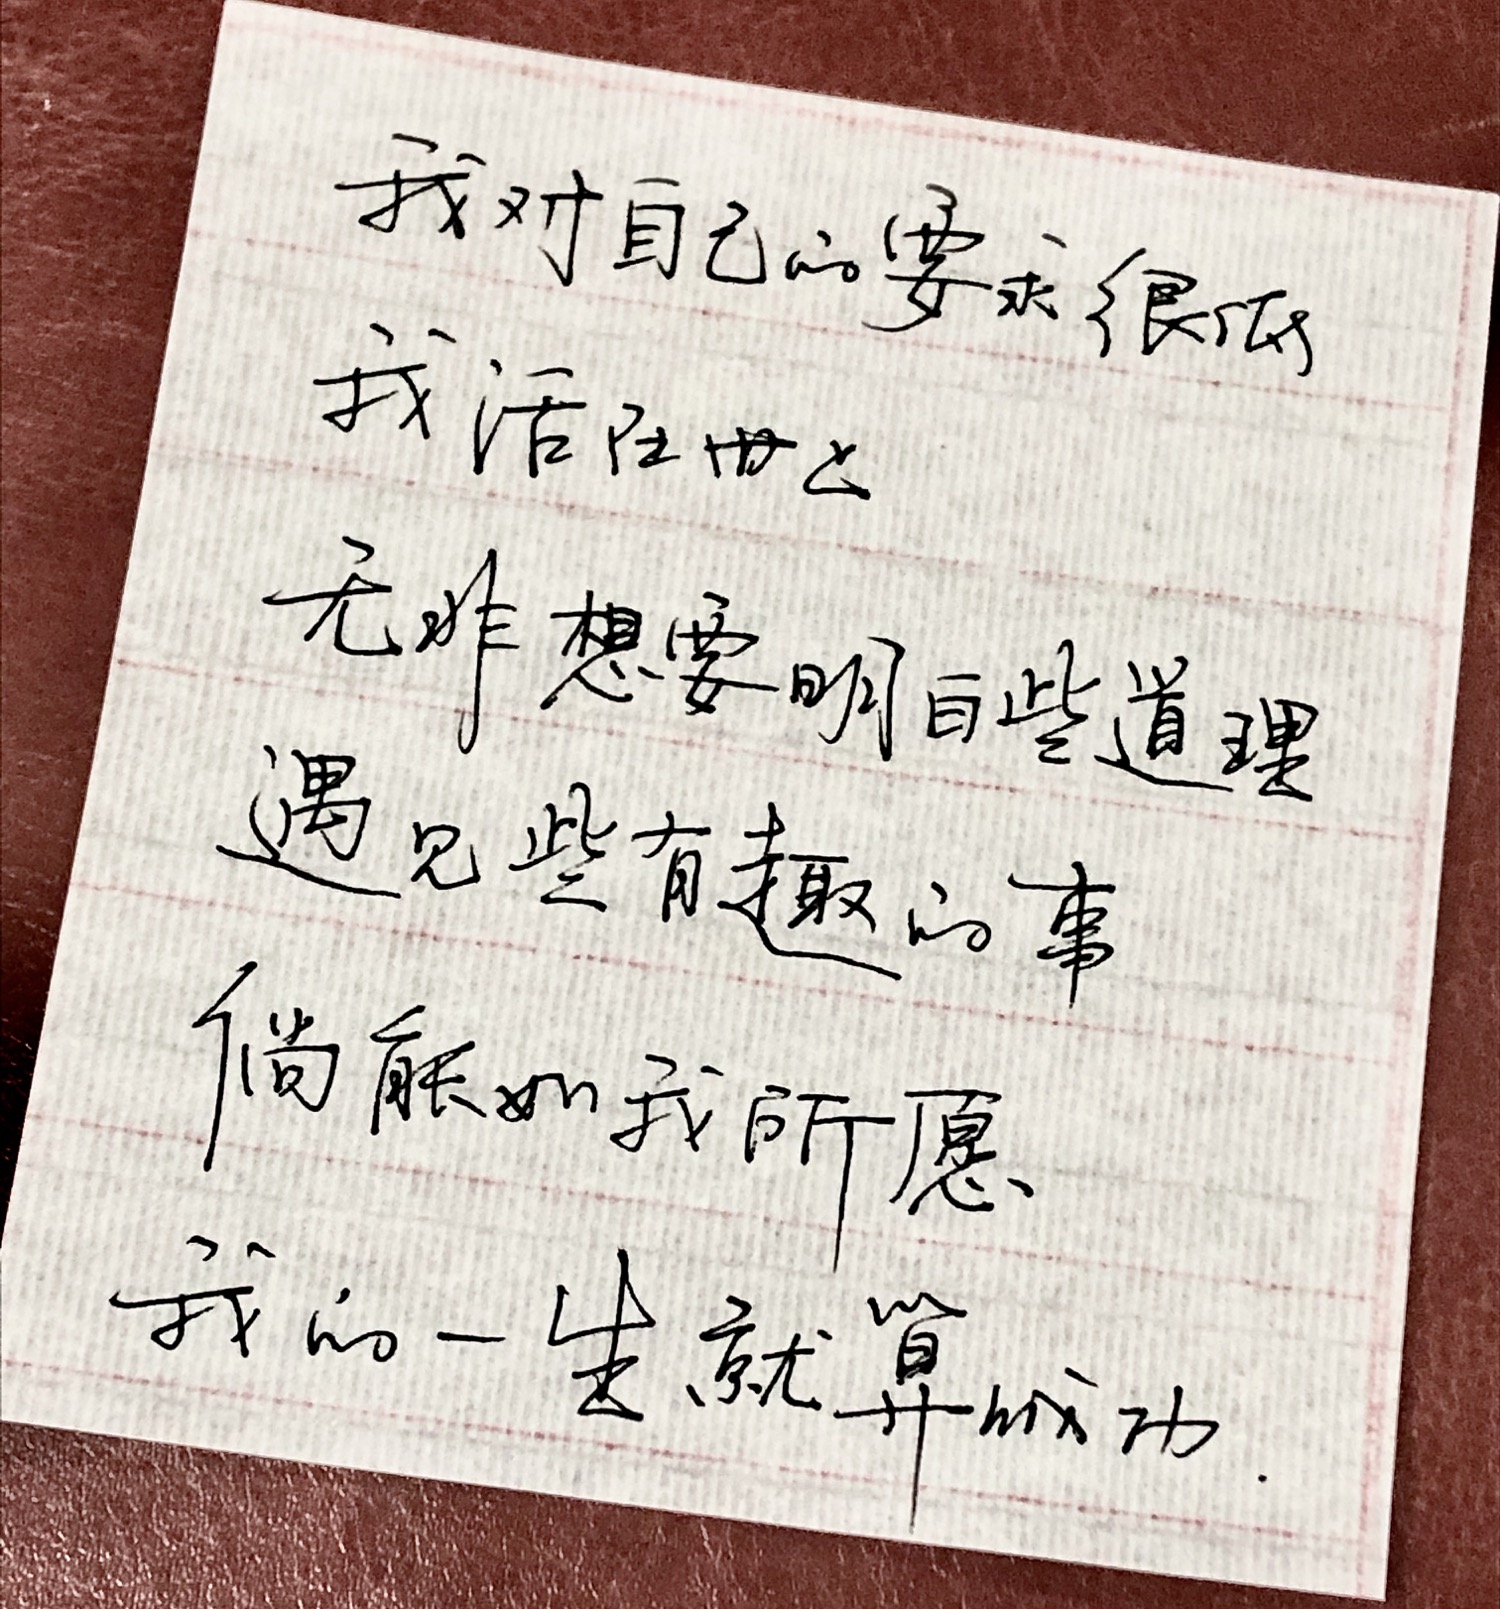 我对自己的要求很低
我活在世上
无非想要明白些道理
遇见些有趣的事
倘能如我所愿
我的一生就算成功.